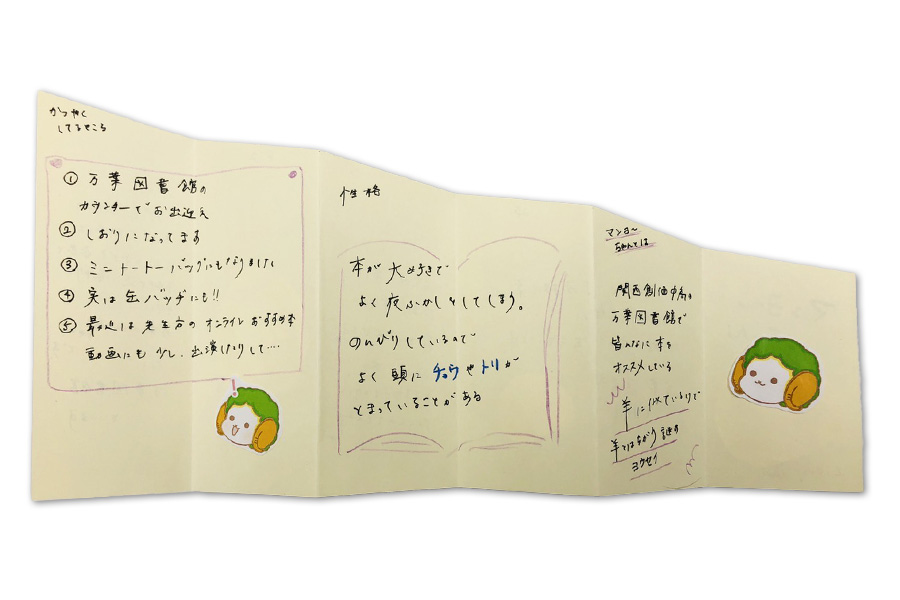 かつやく
してるところ
① 万葉図書館の
カウンターでお出迎え
② しおりになってます
③ ミニトートーバッグにもなりました
④ 実は缶バッヂにも!!
⑤ 最近は先生方のオンラインおすすめ本
動画にも少し、出演したりして....
性格
本が大好きで
よく夜ふかしをしてしまう。
のんびりしているので
よく頭にチョウやトリが
とまっていることがある
マンヨ〜
ちゃんとは
関西創価中高の
万葉図書館で
皆んなに本を
オススメしている
羊に似ているけど
羊とはちがう謎の
ヨウセイ